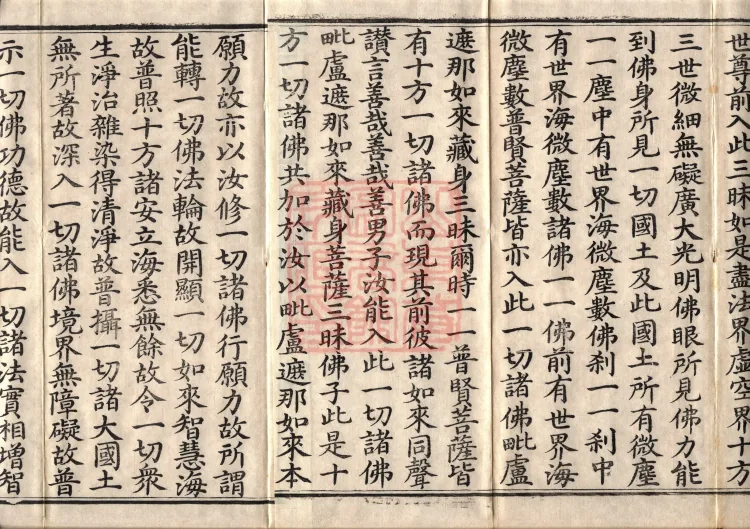 世尊前入此三昧如是盡法界虛空界十方
三世微細無礙廣大光明佛眼所見佛力能
到佛身所見一切國土及此國土所有微塵
一一塵中有世界海微塵數佛刹一一刹中
有世界海微塵數諸佛一一佛前有世界海
微塵數普賢菩薩皆亦入此一切諸佛毗盧
遮那如來藏身三昧爾時一一普賢菩薩皆
有十方一切諸佛而現其前彼諸如來同聲
讃言善哉善哉善男子汝能入此一切諸佛
毗盧遮那如來藏身菩薩三昧佛子此是十
方一切諸佛共加於汝以毗盧遮那如來本
願力故亦以汝修一切諸佛行願力故所謂
能轉一切佛法輪故開顯一切如來智慧海
故普照十方諸安立海悉無餘故令一切衆
生淨治雜染得清淨故普攝一切諸大國土
無所著故深入一切諸佛境界無障礙故普
示一切佛功德故能入一切諸法實相增智